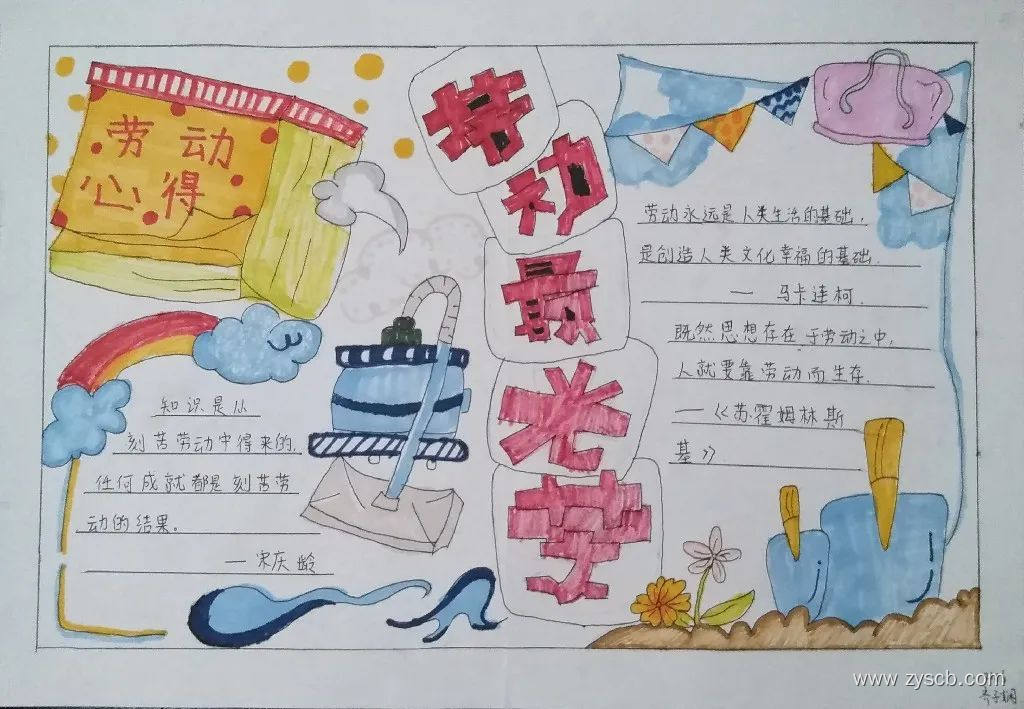 劳动
心得
劳动最光荣
知识是从
刻苦劳动中得来的,
任何成就都是刻苦劳
动的结果。
— 宋庆龄
劳动永远是人类生活的基础,
是创造人类文化幸福的基础.
— 马卡连柯.
既然思想存在于劳动之中,
人就要靠劳动而生存.
—《苏霍姆林斯
基》
www.zyscb.com